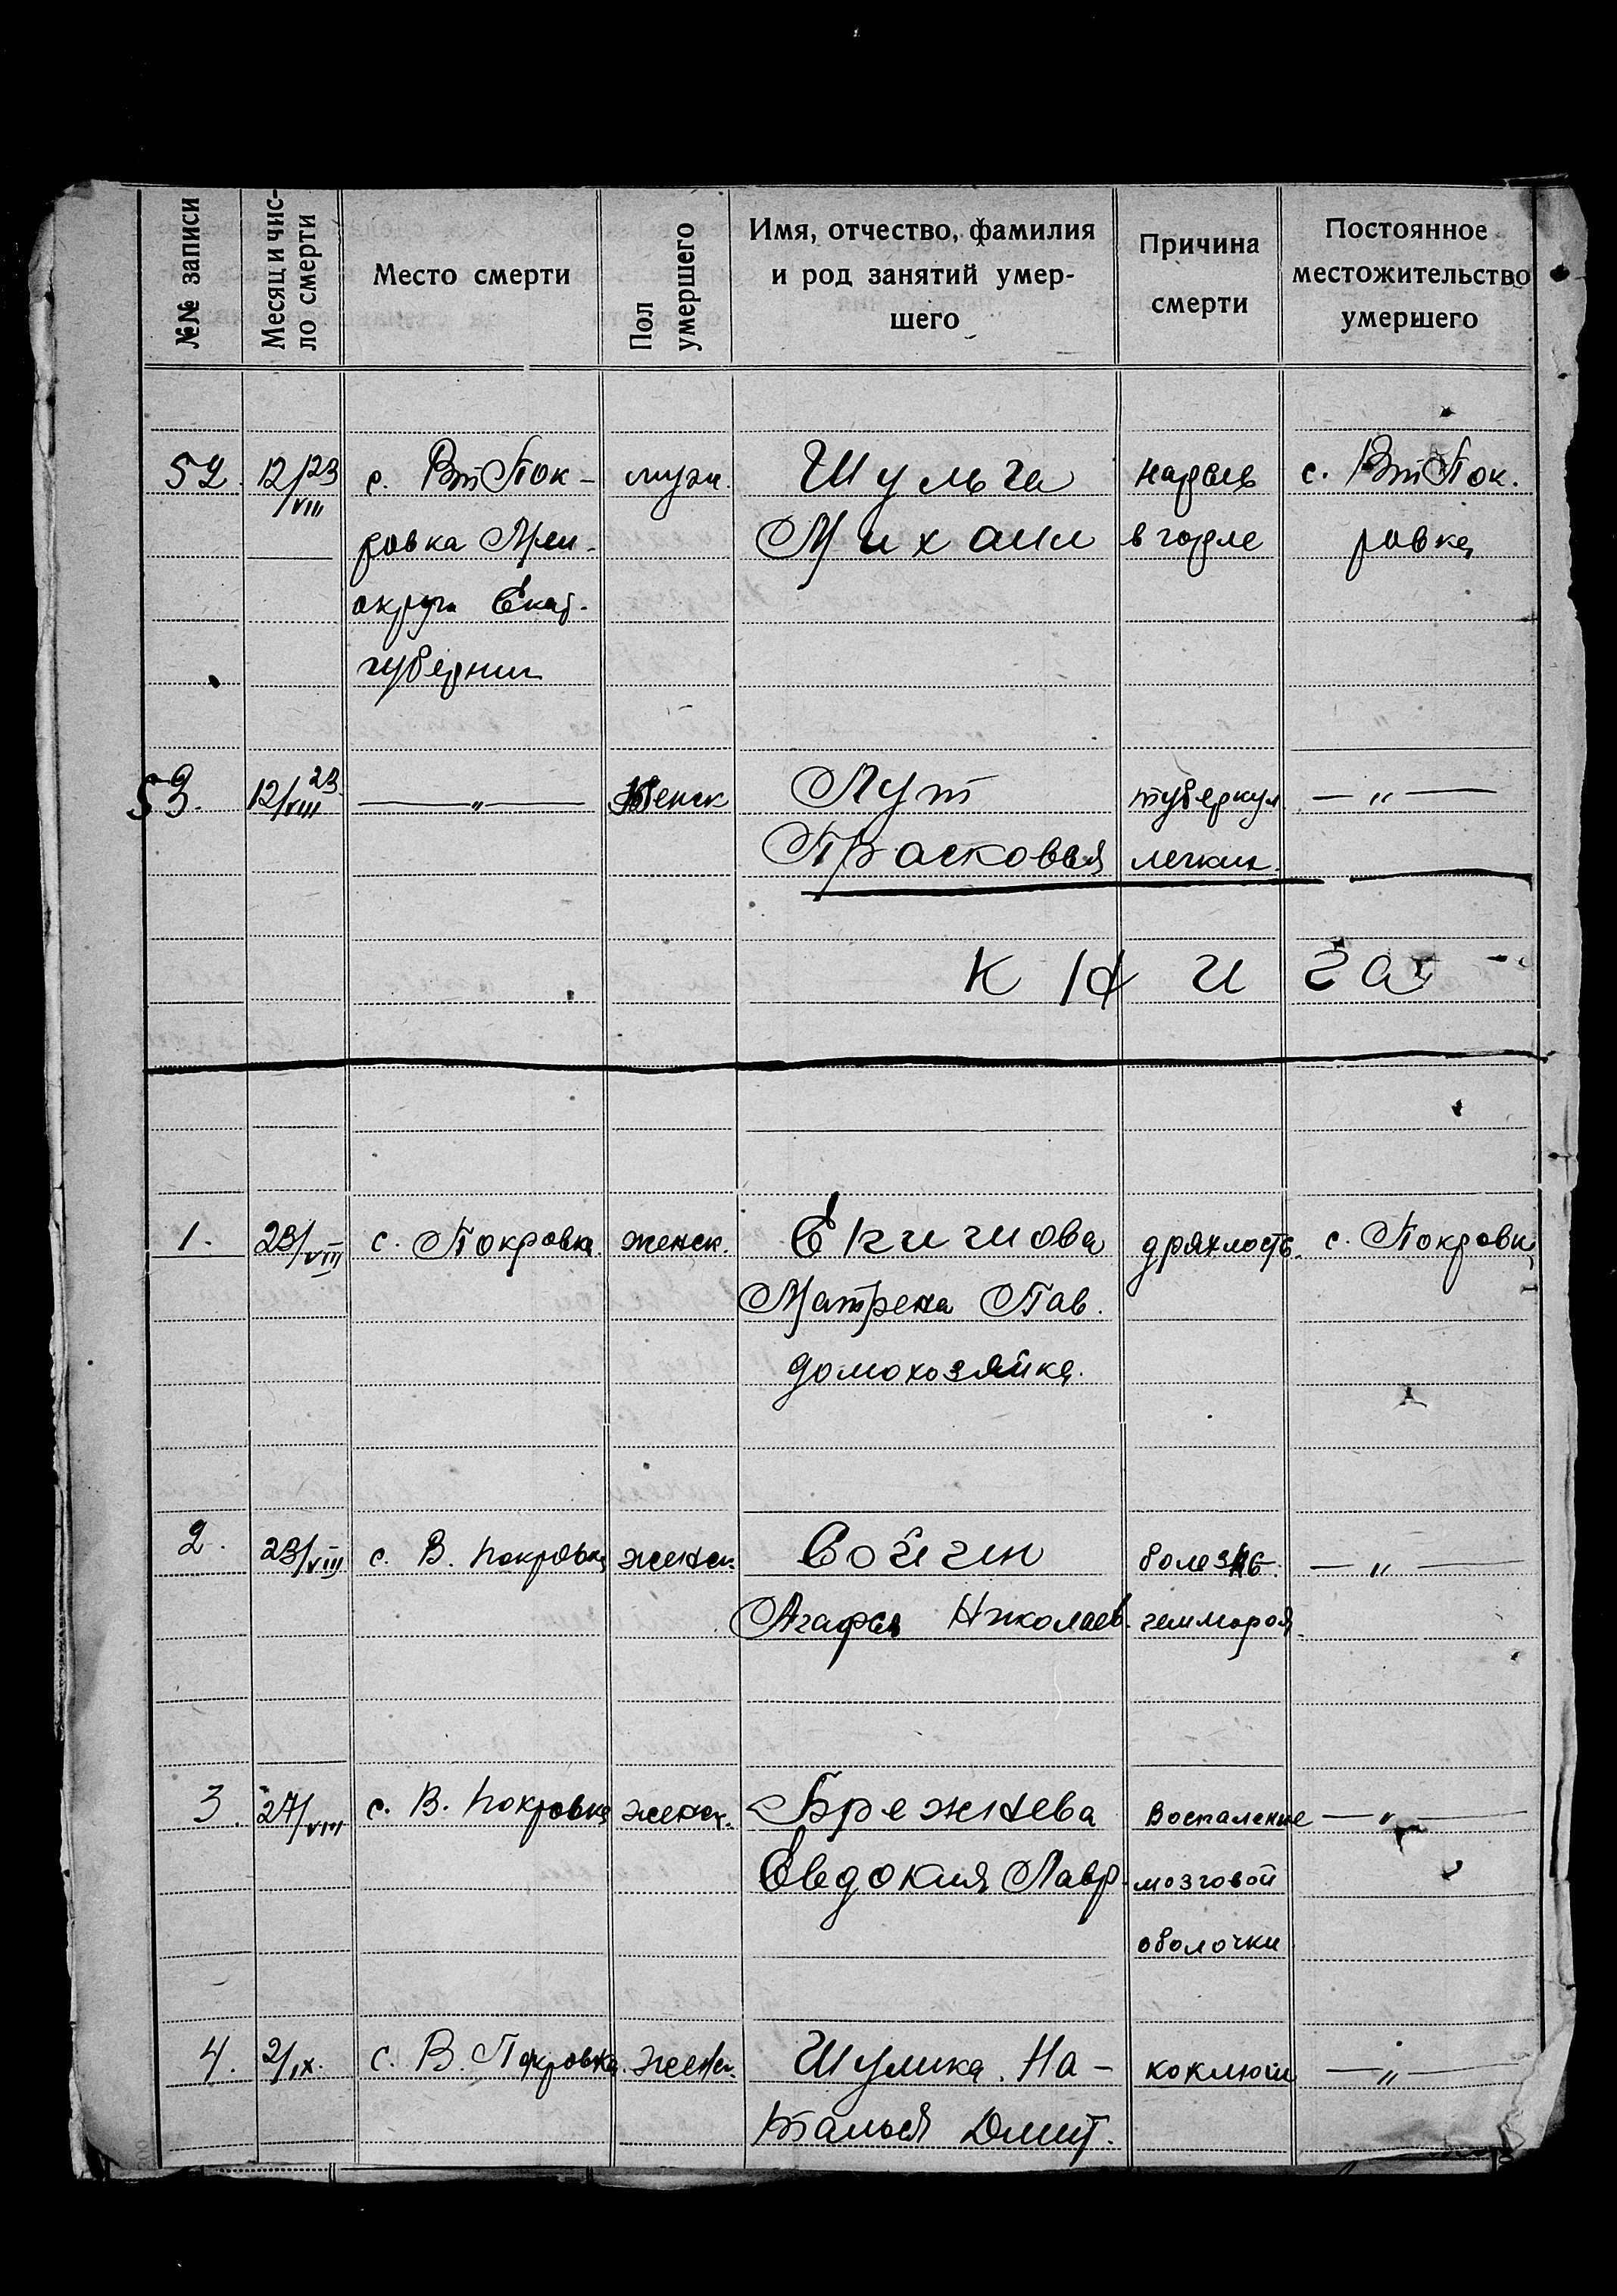 №№ записи
Месяц и чис-
ло смерти
Место смерти
Пол
умершего
Имя, отчество, фамилия
и род занятий умер-
шего
Причина
смерти
Постоянное
местожительство
умершего
52. 12/VIII 23 с. Вт Пок- муж. Шульга с. Вт Пок.
ровка Михаил в горле ровка
округа Екат.
губернии
53. 12/VIII 23 — „ — Женск Лут туберкул — „ —
Прасковья легких.
К Н И ГА
1. 23/VIII с. Покровка женск. Екимова дряхлость. с. Покровка
Матрена Пав.
домохозяйка.
2. 23/VIII с. В. Покровка женск. болезнь — „ —
Агафья Николаев. геммороя
3. 27/VIII с. В. Покровка женск. Брежнева Воспаление — „ —
Евдокия Лавр. мозговой
оболочки
4. 2/IX. с. В. Покровка. женск. Шулика. На- коклюш — „ —
талья Дмит.